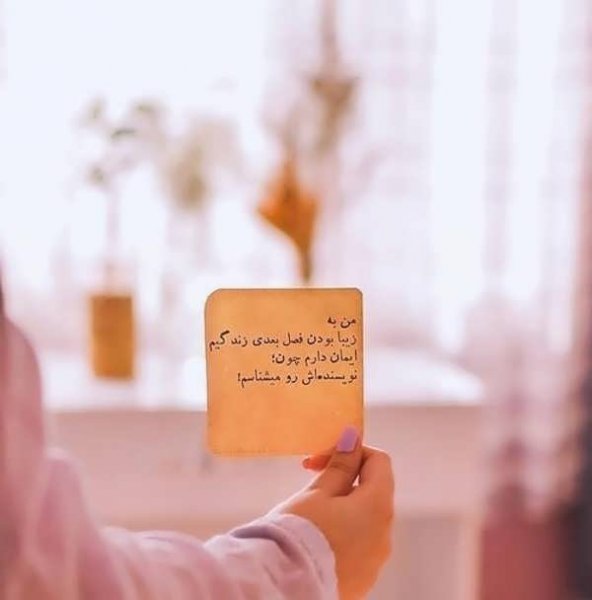 من به
زیبا بودن فصل بعدی زندگیم
ایمان دارم چون؛
نویسنده‌اش رو میشناسم!